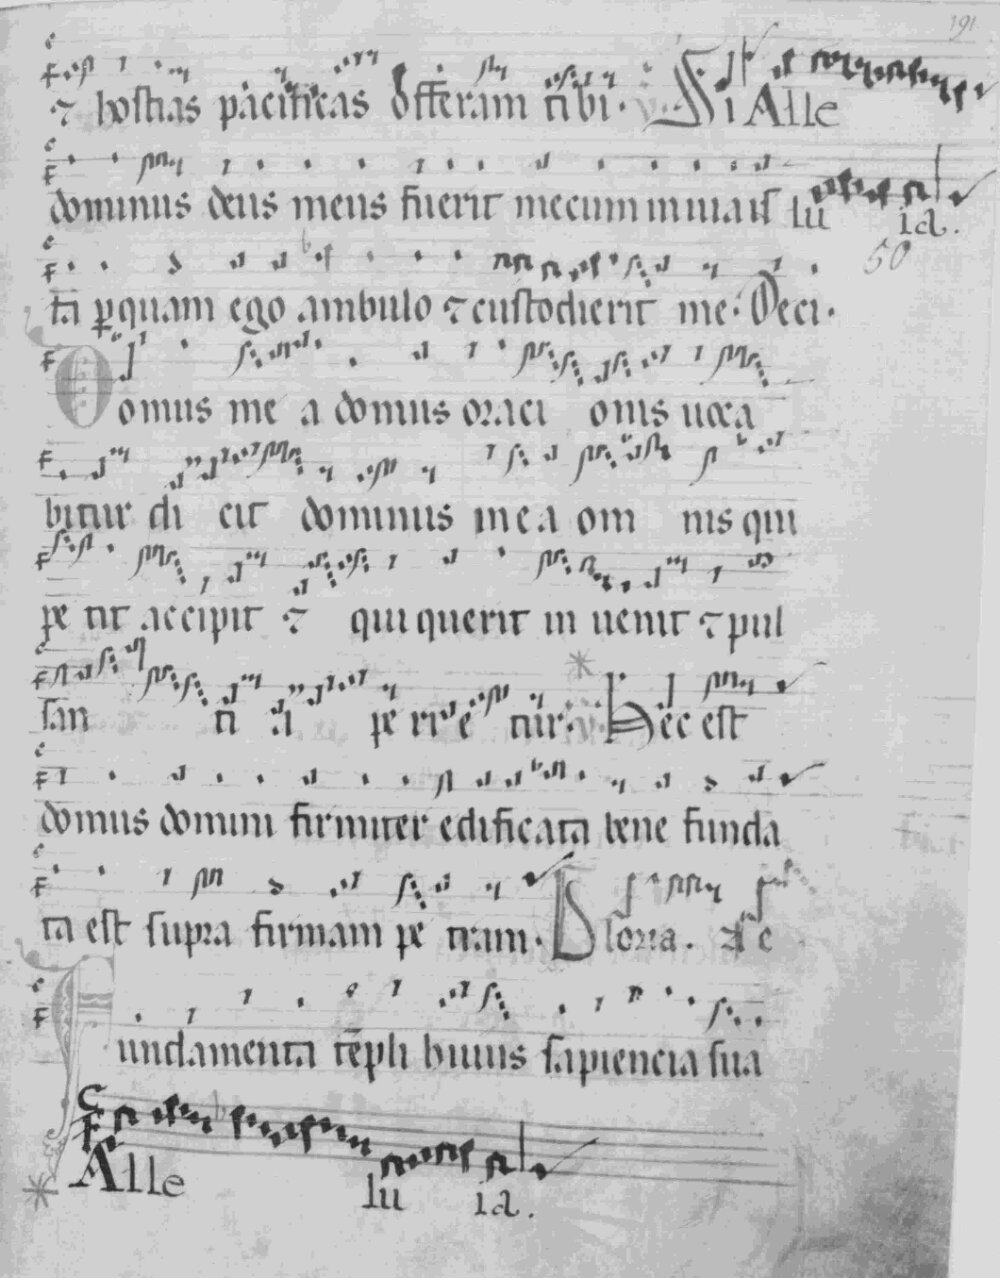 191
⁊ hostias pacificas offeram tibi. Si Alle
dominus deus meus fuerit mecum in uia is lu ia.
50
ta ꝑ quam ego ambulo ⁊ custodierit me. Deci.
Domus me a domus oraci onis uoca
bitur di cit dominus in ea om nis qui
pe tit accipit ⁊ qui querit in uenit ⁊ pul
san ti a pe ri e tur. Hec est
domus domini firmiter edificata bene funda
ta est supra firmam pe tram. Gloria.
Fundamenta tẽpli huius sapiencia sua
Alle lu ia.